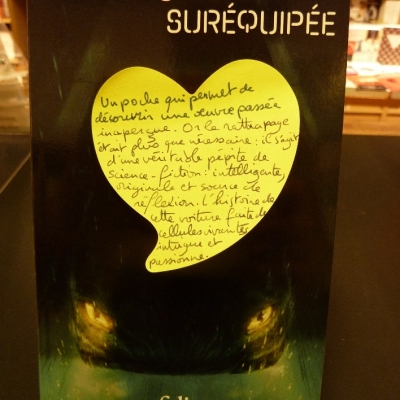 SURÉQUIPÉE
Un poche qui permet de
découvrir une œuvre passée
inaperçue. Or le rattrapage
était plus que nécessaire : il s'agit
d'une véritable pépite de
science-fiction : intelligente,
originale et source de
réflexion. L'histoire de
cette voiture faite de
cellules vivantes
intrigue et
passionne.